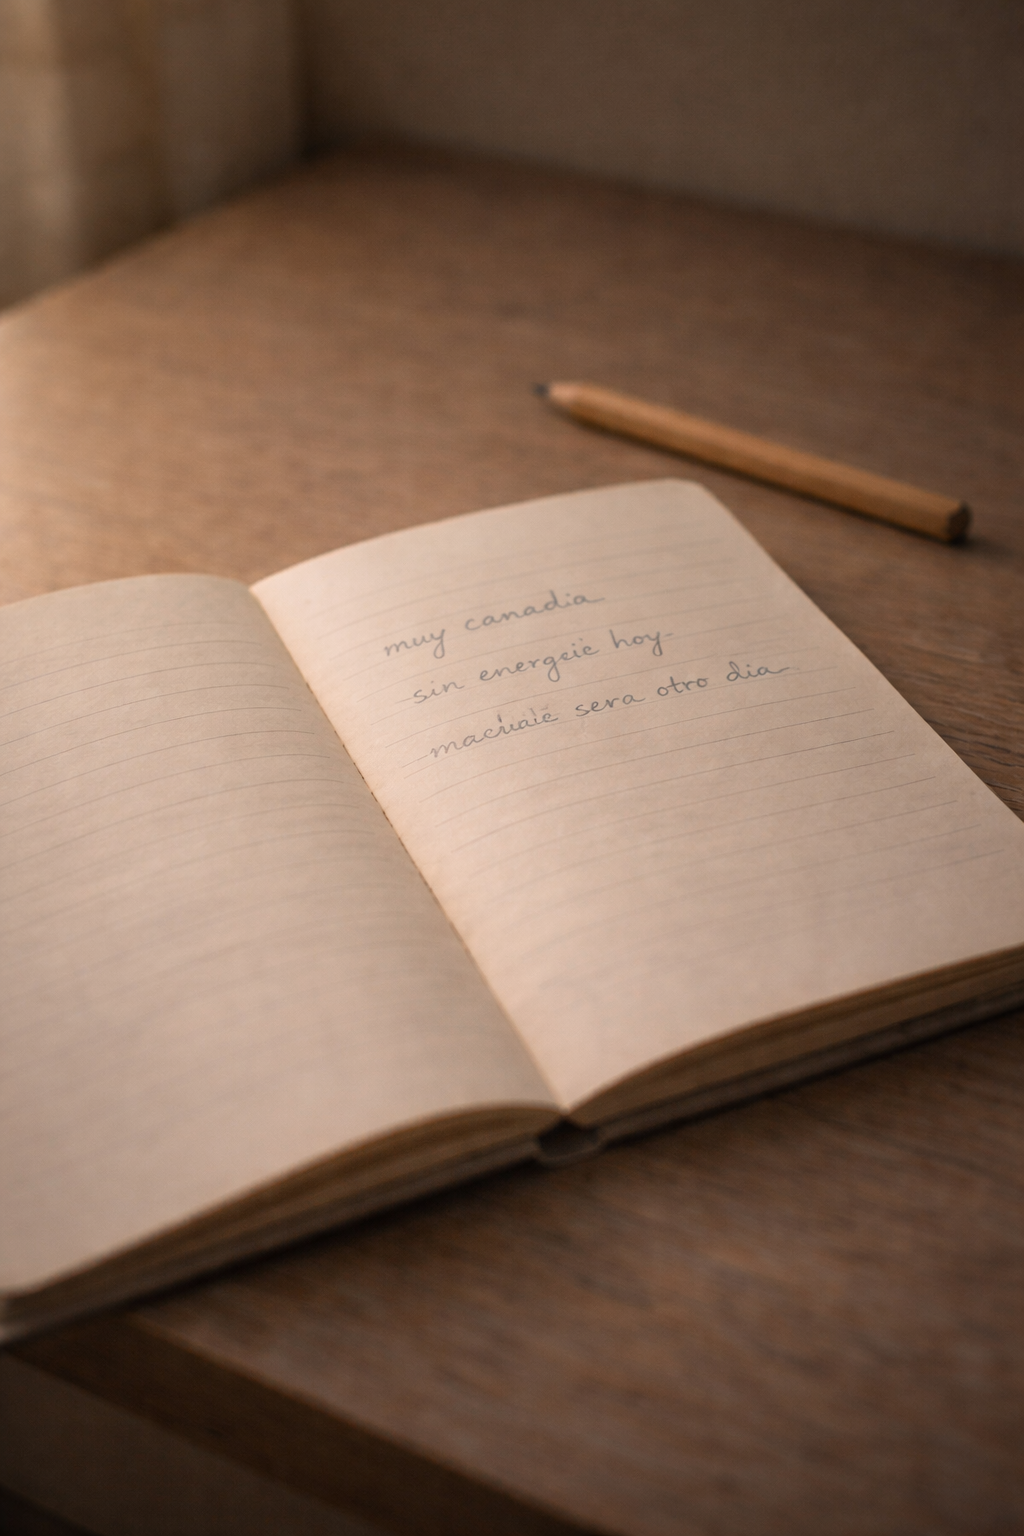 muy canadia
sin energeie hoy
sera otro dia